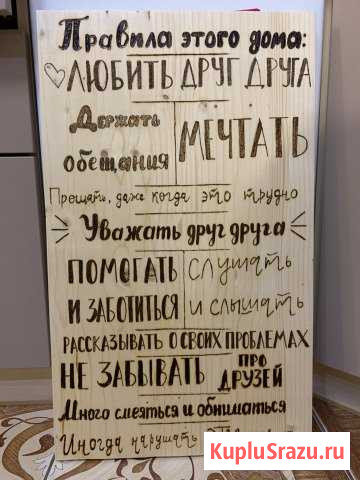 Правила этого дома:
ЛЮБИТЬ ДРУГ ДРУГА
Держать
обещания
МЕЧТАТЬ
Прощать, даже когда это трудно
Уважать друг друга
ПОМОГАТЬ
И ЗАБОТИТЬСЯ
слушать
и слышать
РАССКАЗЫВАТЬ О СВОИХ ПРОБЛЕМАХ
НЕ ЗАБЫВАТЬ
ПРО
ДРУЗЕЙ
Много смеяться и обниматься
Иногда нарушать
KupluSrazu.ru